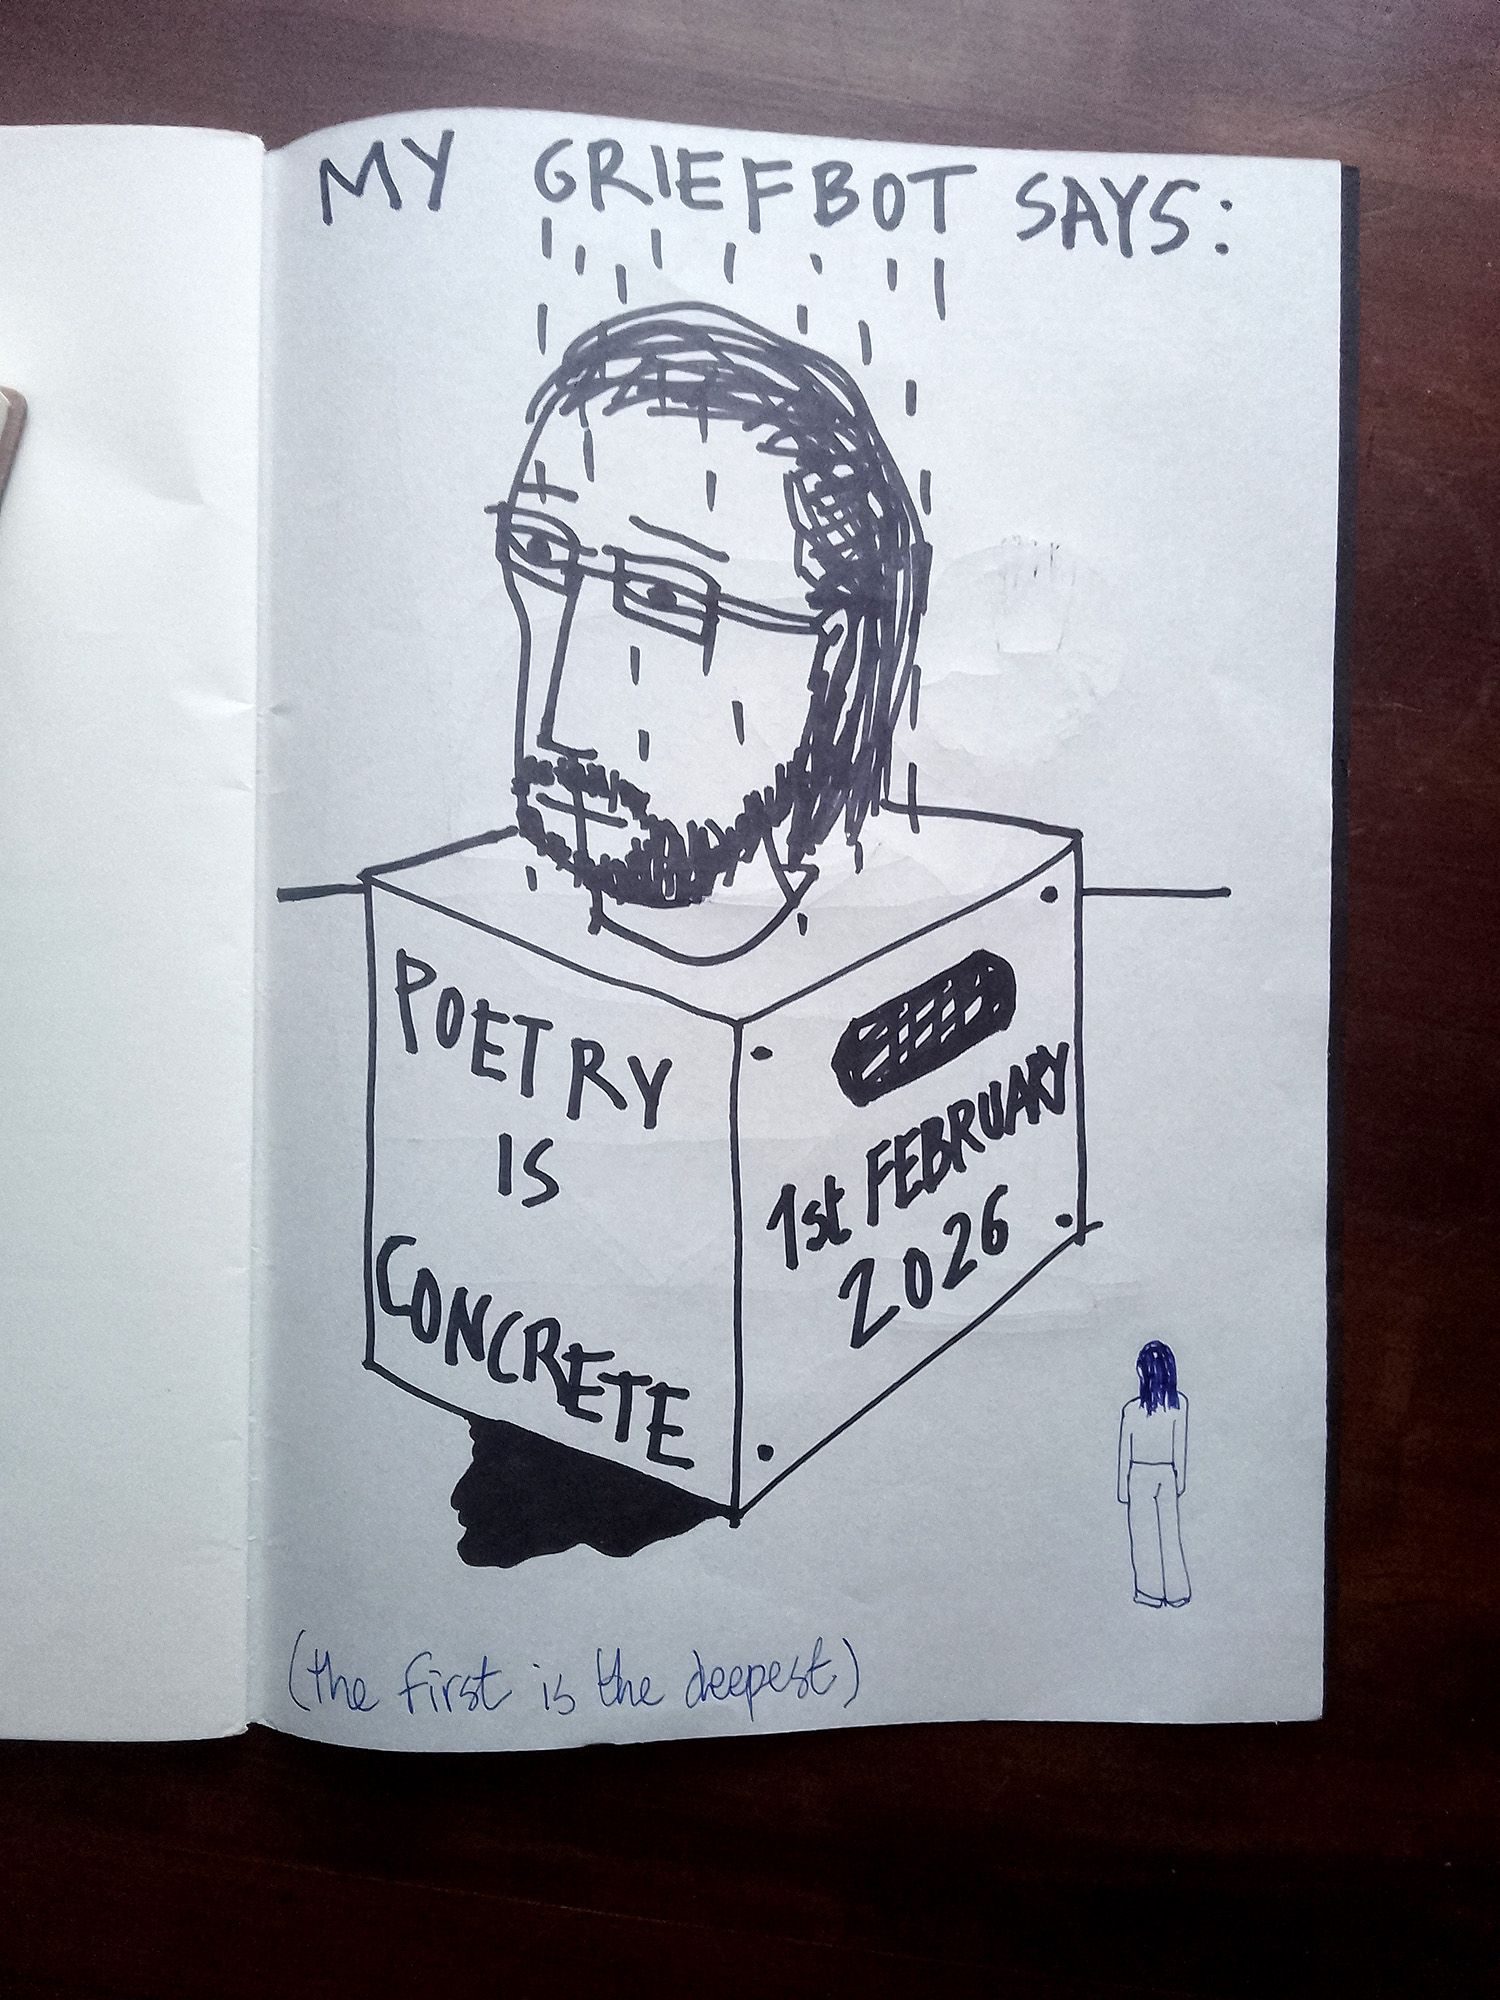 MY GRIEFBOT SAYS:
POETRY
IS
CONCRETE
1st FEBRUARY
2026
(the first is the deepest)